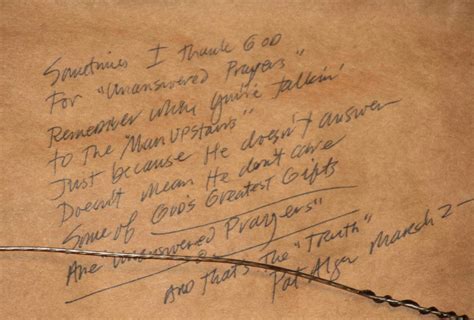 Sometimes I thank GOD
For "Unanswered Prayers"
Remember when you're talkin'
to The "Man Upstairs"
Just because He doesn't answer
Doesn't mean He don't care
Some of God's Greatest Gifts
Are Unanswered Prayers"
And that's the "Truth"
Pat Alger March 2-